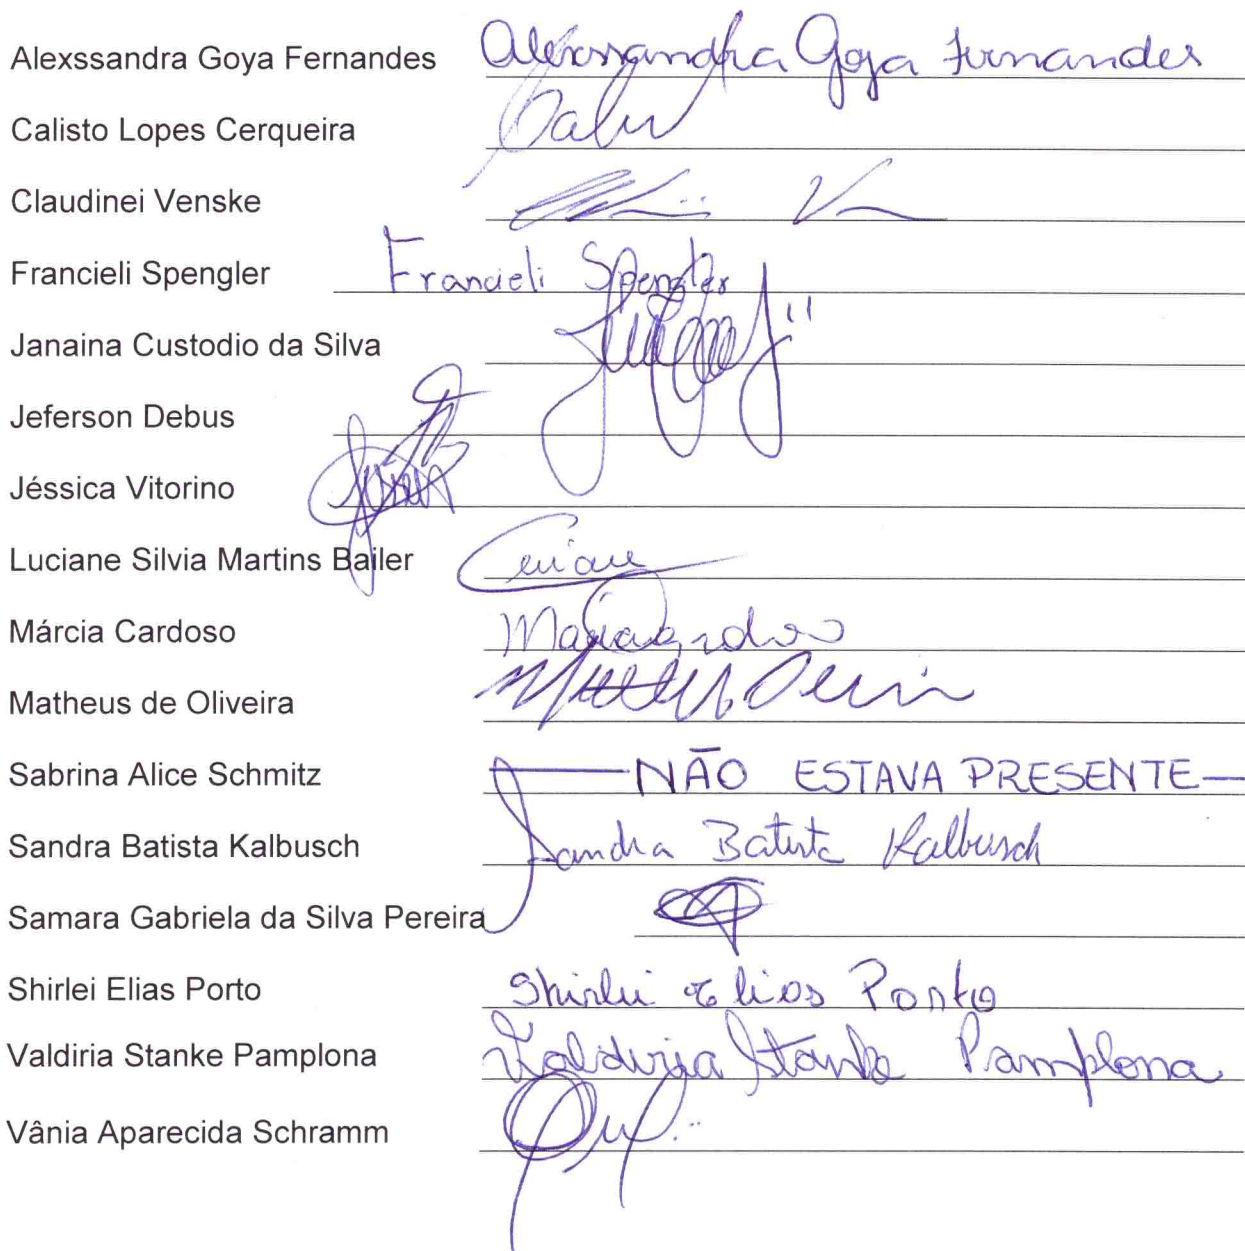 Alexssandra Goya Fernandes Alexssandra Goya Fernandes
Calisto Lopes Cerqueira
Claudinei Venske
Francieli Spengler Francieli Spengler
Janaina Custodio da Silva
Jeferson Debus
Jéssica Vitorino
Luciane Silvia Martins Bailer
Márcia Cardoso
Matheus de Oliveira
Sabrina Alice Schmitz NÃO ESTAVA PRESENTE
Sandra Batista Kalbusch Sandra Batista Kalbusch
Samara Gabriela da Silva Pereira
Shirlei Elias Porto Shirlei Elias Porto
Valdiria Stanke Pamplona Valdiria Stanke Pamplona
Vânia Aparecida Schramm